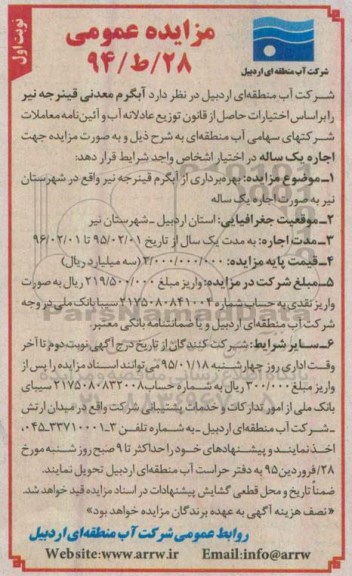 نوبت اول
مزایده عمومی
۲۸/ط/۹۴
شرکت آب منطقه ای اردبیل
شرکت آب منطقه‌ای اردبیل در نظر دارد آبگرم معدنی قینرجه نیر
را براساس اختیارات حاصل از قانون توزیع عادلانه آب و آئین‌نامه معاملات
شرکتهای سهامی آب منطقه‌ای به شرح ذیل و به صورت مزایده جهت
اجاره یک ساله در اختیار اشخاص واجد شرایط قرار دهد:
۱ـ موضوع مزایده: بهره‌برداری از آبگرم قینرجه نیر واقع در شهرستان
نیر به صورت اجاره یک ساله
۲ـ موقعیت جغرافیایی: استان اردبیل ـ شهرستان نیر
۳ـ مدت اجاره: به مدت یک سال از تاریخ ۹۵/۰۲/۰۱ تا ۹۶/۰۲/۰۱
۴ـ قیمت پایه مزایده: ۳/۰۰۰/۰۰۰/۰۰۰ (سه میلیارد ریال)
۵ـ مبلغ شرکت در مزایده: واریز مبلغ ۲۱۹/۵۰۰/۰۰۰ ریال به صورت
واریز نقدی به حساب شماره ۲۱۷۵۰۸۰۸۴۱۰۰۴ سیبا بانک ملی در وجه
شرکت آب منطقه‌ای اردبیل و یا ضمانتنامه بانکی معتبر.
۶ـ سایر شرایط: شرکت کنندگان از تاریخ درج آگهی نوبت دوم تا آخر
وقت اداری روز چهارشنبه ۹۵/۰۱/۱۸ می‌توانند اسناد مزایده را پس از
واریز مبلغ ۳۰۰/۰۰۰ ریال به شماره حساب ۲۱۷۵۰۸۰۸۳۲۰۰۸ سیبای
بانک ملی از امور تدارکات و خدمات پشتیبانی شرکت واقع در میدان ارتش
ـ شرکت آب منطقه‌ای اردبیل ـ به شماره تلفن ۳ـ۳۳۷۱۰۰۰۱ـ۰۴۵
اخذ نمایند و پیشنهادهای خود را حداکثر تا ۹ صبح روز شنبه مورخ
۲۸/فروردین ۹۵ به دفتر حراست آب منطقه‌ای اردبیل تحویل نمایند.
ضمناً تاریخ و محل قطعی گشایش پیشنهادات در اسناد مزایده قید خواهد شد.
«نصف هزینه آگهی به عهده برندگان مزایده خواهد بود»
روابط عمومی شرکت آب منطقه‌ای اردبیل
Website:www.arrw.ir Email:info@arrw
ParsNamadData